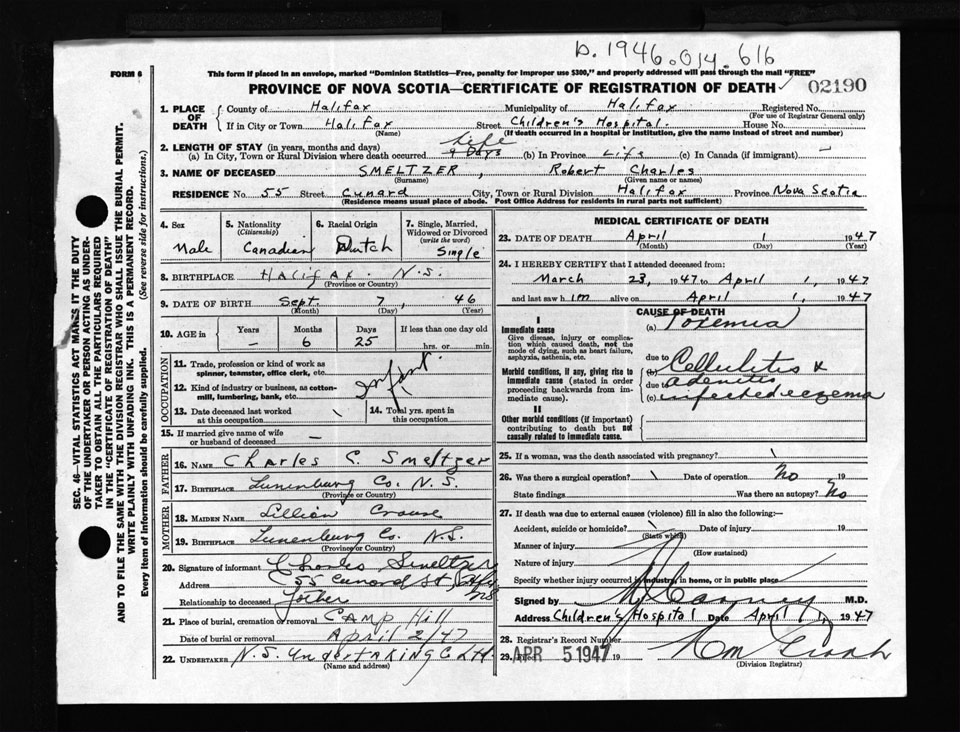 b. 1946.014.616
FORM 6
This form if placed in an envelope, marked "Dominion Statistics—Free, penalty for improper use $300," and properly addressed will pass through the mail "FREE"
PROVINCE OF NOVA SCOTIA—CERTIFICATE OF REGISTRATION OF DEATH 02190
1. PLACE OF DEATH
County of Halifax Municipality of Halifax Registered No.
(For use of Registrar General only)
If in City or Town Halifax Street Children's Hospital. House No.
(Name) (If death occurred in a hospital or institution, give the name instead of street and number)
2. LENGTH OF STAY (in years, months and days)
Life
(a) In City, Town or Rural Division where death occurred 9 Days (b) In Province Life (c) In Canada (if immigrant) —
3. NAME OF DECEASED SMELTZER, Robert Charles
(Surname) (Given name or names)
RESIDENCE No. 55 Street Cunard City, Town or Rural Division Halifax Province Nova Scotia
(Residence means usual place of abode. Post Office Address for residents in rural parts not sufficient)
4. Sex
Male
5. Nationality (Citizenship)
Canadien
6. Racial Origin
Dutch
7. Single, Married, Widowed or Divorced (write the word)
Single
8. BIRTHPLACE Halifax. N.S.
(Province or Country)
9. DATE OF BIRTH Sept. 7, 46
(Month) (Day) (Year)
10. AGE in
Years Months Days If less than one day old
— 6 25 hrs. or min.
OCCUPATION
11. Trade, profession or kind of work as spinner, teamster, office clerk, etc.
12. Kind of industry or business, as cotton-mill, lumbering, bank, etc.
infant.
13. Date deceased last worked at this occupation
14. Total yrs. spent in this occupation
15. If married give name of wife or husband of deceased —
FATHER
16. NAME Charles C. Smeltzer
17. BIRTHPLACE Lunenburg Co. N.S.
(Province or Country)
MOTHER
18. MAIDEN NAME Lillian Crouse
19. BIRTHPLACE Lunenburg Co. N.S.
(Province or Country)
20. Signature of informant Charles Smeltzer
Address 55 Cunard St Hfx NS
Relationship to deceased Father
21. Place of burial, cremation or removal CAMP Hill
Date of burial or removal April 2/47
22. UNDERTAKER N.S. Undertaking C Ltd.
(Name and address)
MEDICAL CERTIFICATE OF DEATH
23. DATE OF DEATH April 1 1947
(Month) (Day) (Year)
24. I HEREBY CERTIFY that I attended deceased from:
March 23, 1947 to April 1, 1947
and last saw him alive on April 1, 1947
CAUSE OF DEATH
I
Immediate cause
Give disease, injury or complication which caused death, not the mode of dying, such as heart failure, asphyxia, asthenia, etc.
(a) Toxemia
due to
Morbid conditions, if any, giving rise to immediate cause (stated in order proceeding backwards from immediate cause).
Cellulitis &
due to adenitis
(c) infected eczema
II
Other morbid conditions (if important) contributing to death but not causally related to immediate cause.
25. If a woman, was the death associated with pregnancy?
26. Was there a surgical operation? Date of operation No 19
State findings Was there an autopsy? No
27. If death was due to external causes (violence) fill in also the following:—
Accident, suicide or homicide? Date of injury 19
(State which)
Manner of injury
(How sustained)
Nature of injury
Specify whether injury occurred in industry, in home, or in public place
Signed by M.D.
Address Children's Hospital Date April 1, 1947
28. Registrar's Record Number
29. Filed APR 5 1947 19
(Division Registrar)
SEC. 46—VITAL STATISTICS ACT MAKES IT THE DUTY
OF THE UNDERTAKER OR PERSON ACTING AS UNDER-
TAKER TO OBTAIN ALL THE PARTICULARS REQUIRED
IN THE "CERTIFICATE OF REGISTRATION OF DEATH"
AND TO FILE THE SAME WITH THE DIVISION REGISTRAR WHO SHALL ISSUE THE BURIAL PERMIT.
WRITE PLAINLY WITH UNFADING INK. THIS IS A PERMANENT RECORD.
Every item of information should be carefully supplied. (See reverse side for instructions.)